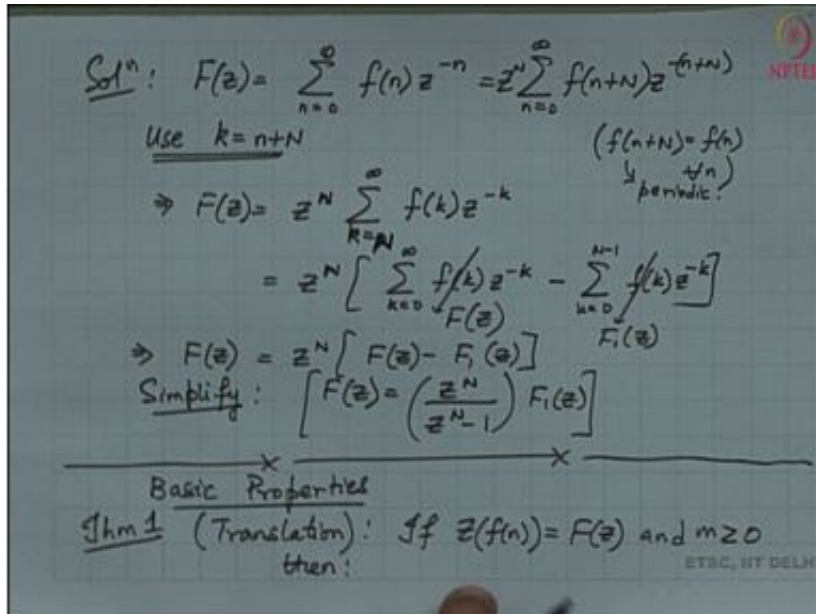 Solⁿ: F(z) = ∑_{n=0}^{∞} f(n) z^{-n} = z^N ∑_{n=0}^{∞} f(n+N) z^{-(n+N)}
NPTEL
Use k = n+N
(f(n+N) = f(n)
↘ ∀n)
periodic.
⇒ F(z) = z^N ∑_{k=N}^{∞} f(k) z^{-k}
= z^N [ ∑_{k=0}^{∞} f(k) z^{-k} - ∑_{k=0}^{N-1} f(k) z^{-k} ]
F(z) F₁(z)
⇒ F(z) = z^N [ F(z) - F₁(z) ]
Simplify: [ F(z) = ( z^N / (z^N - 1) ) F₁(z) ]
Basic Properties
Thm 1 (Translation): If Z(f(n)) = F(z) and m ≥ 0
then:
ETSC, IIT DELH